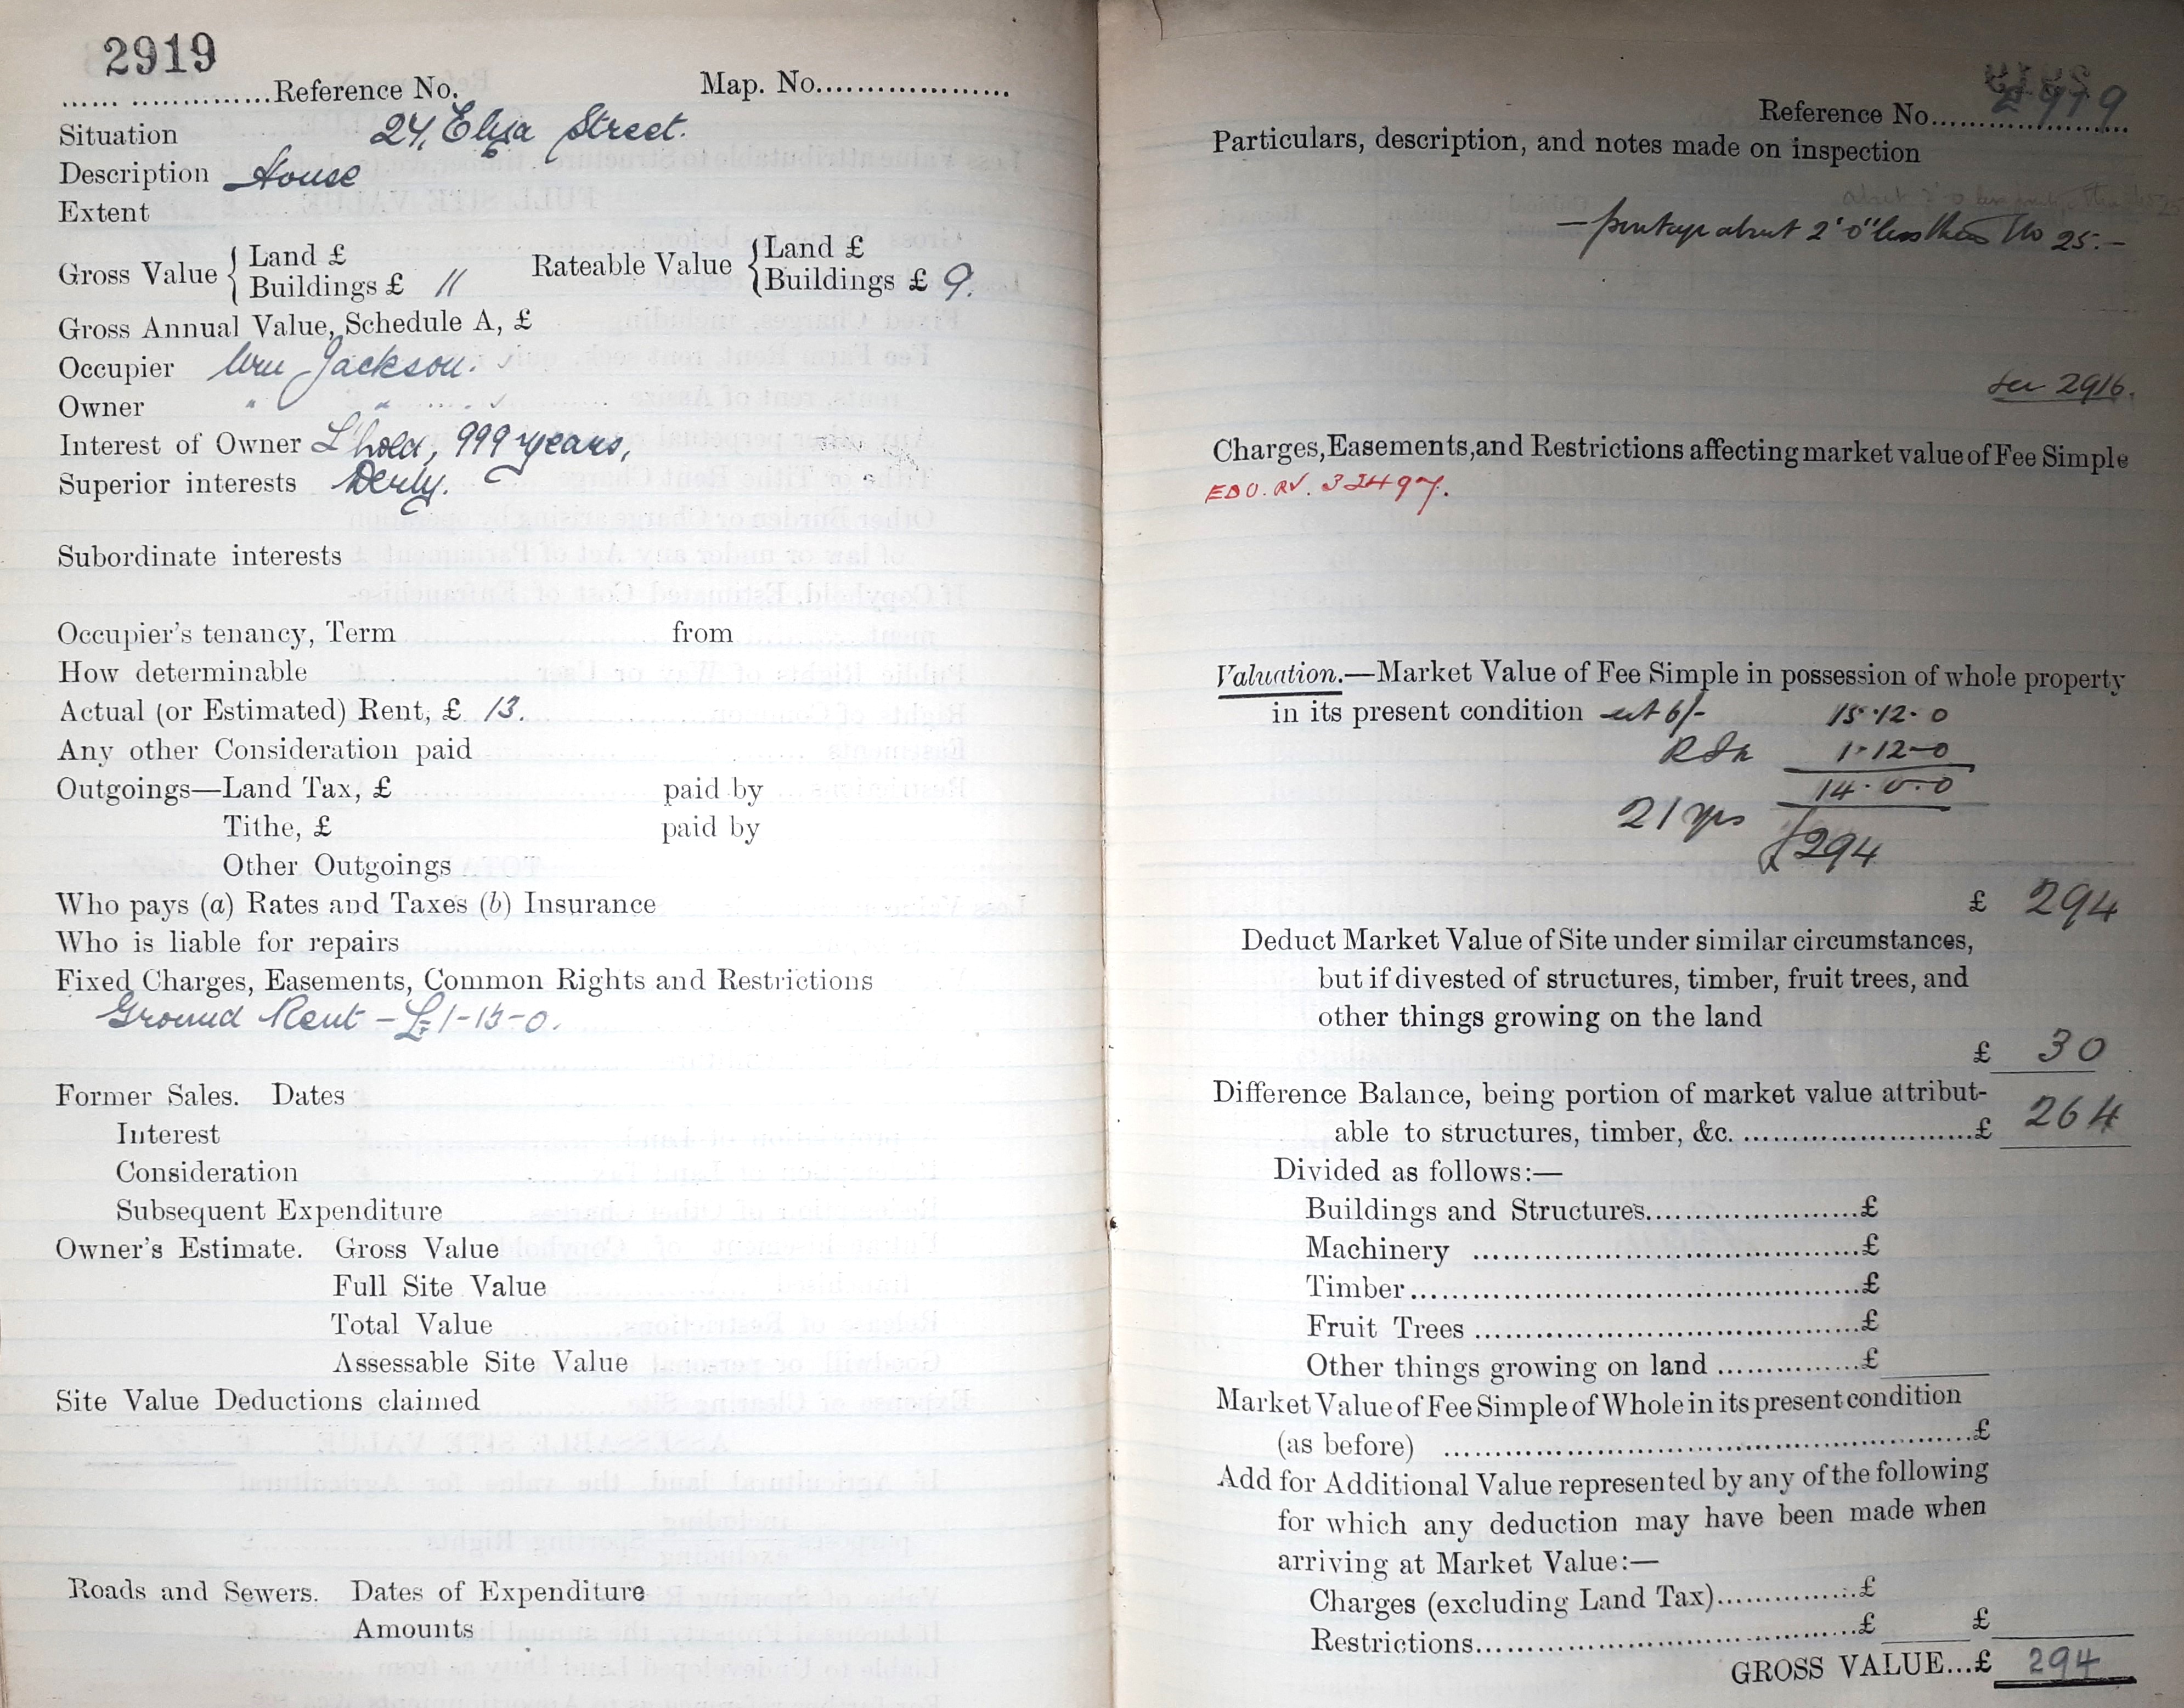 2919
...... ..............Reference No. Map. No....................
Situation 24, Eliza Street.
Description House
Extent
Gross Value { Land £ Rateable Value { Land £
Buildings £ 11 Buildings £ 9.
Gross Annual Value, Schedule A, £
Occupier Wm Jackson.
Owner " "
Interest of Owner L'hold, 999 years,
Superior interests Derby.
Subordinate interests
Occupier's tenancy, Term from
How determinable
Actual (or Estimated) Rent, £ 13.
Any other Consideration paid
Outgoings—Land Tax, £ paid by
Tithe, £ paid by
Other Outgoings
Who pays (a) Rates and Taxes (b) Insurance
Who is liable for repairs
Fixed Charges, Easements, Common Rights and Restrictions
Ground Rent - £1-13-0.
Former Sales. Dates
Interest
Consideration
Subsequent Expenditure
Owner's Estimate. Gross Value
Full Site Value
Total Value
Assessable Site Value
Site Value Deductions claimed
Roads and Sewers. Dates of Expenditure
Amounts
Reference No. 2919
Particulars, description, and notes made on inspection
— frontage about 2'0" less than No 25. —
See 2916.
Charges, Easements, and Restrictions affecting market value of Fee Simple
EDO. RV. 32497.
Valuation.—Market Value of Fee Simple in possession of whole property
in its present condition est 6/- 15.12.0
1-12-0
14.0.0
21 yrs
£294
£ 294
Deduct Market Value of Site under similar circumstances,
but if divested of structures, timber, fruit trees, and
other things growing on the land
£ 30
Difference Balance, being portion of market value attribut-
able to structures, timber, &c. ..........................£ 264
Divided as follows:—
Buildings and Structures......................£
Machinery .......................................£
Timber.............................................£
Fruit Trees .......................................£
Other things growing on land ..............£
Market Value of Fee Simple of Whole in its present condition
(as before) .....................................................£
Add for Additional Value represented by any of the following
for which any deduction may have been made when
arriving at Market Value:—
Charges (excluding Land Tax)...............£
Restrictions.......................................£ £
GROSS VALUE...£ 294